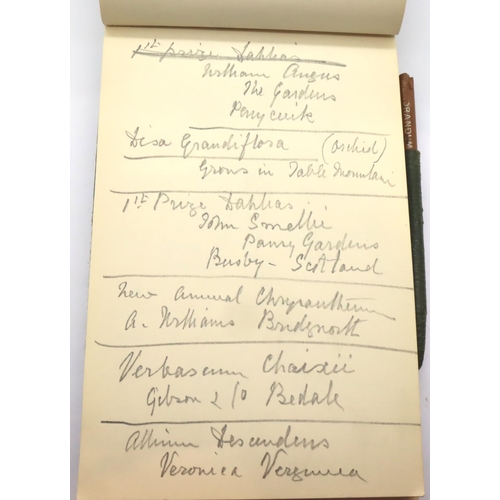 1st prize Dahlias
William Angus
The Gardens
Penycuik
Disa Grandiflosa (Orchid)
Grows in Table Mountain
1st Prize Dahlias
John Smellie
Pansy Gardens
Busby - Scotland
New Annual Chrysanthemum
A. Williams Bridgnorth
Verbascum Chaixii
Gibson & Co Bedale
Allium Descendens
Veronica